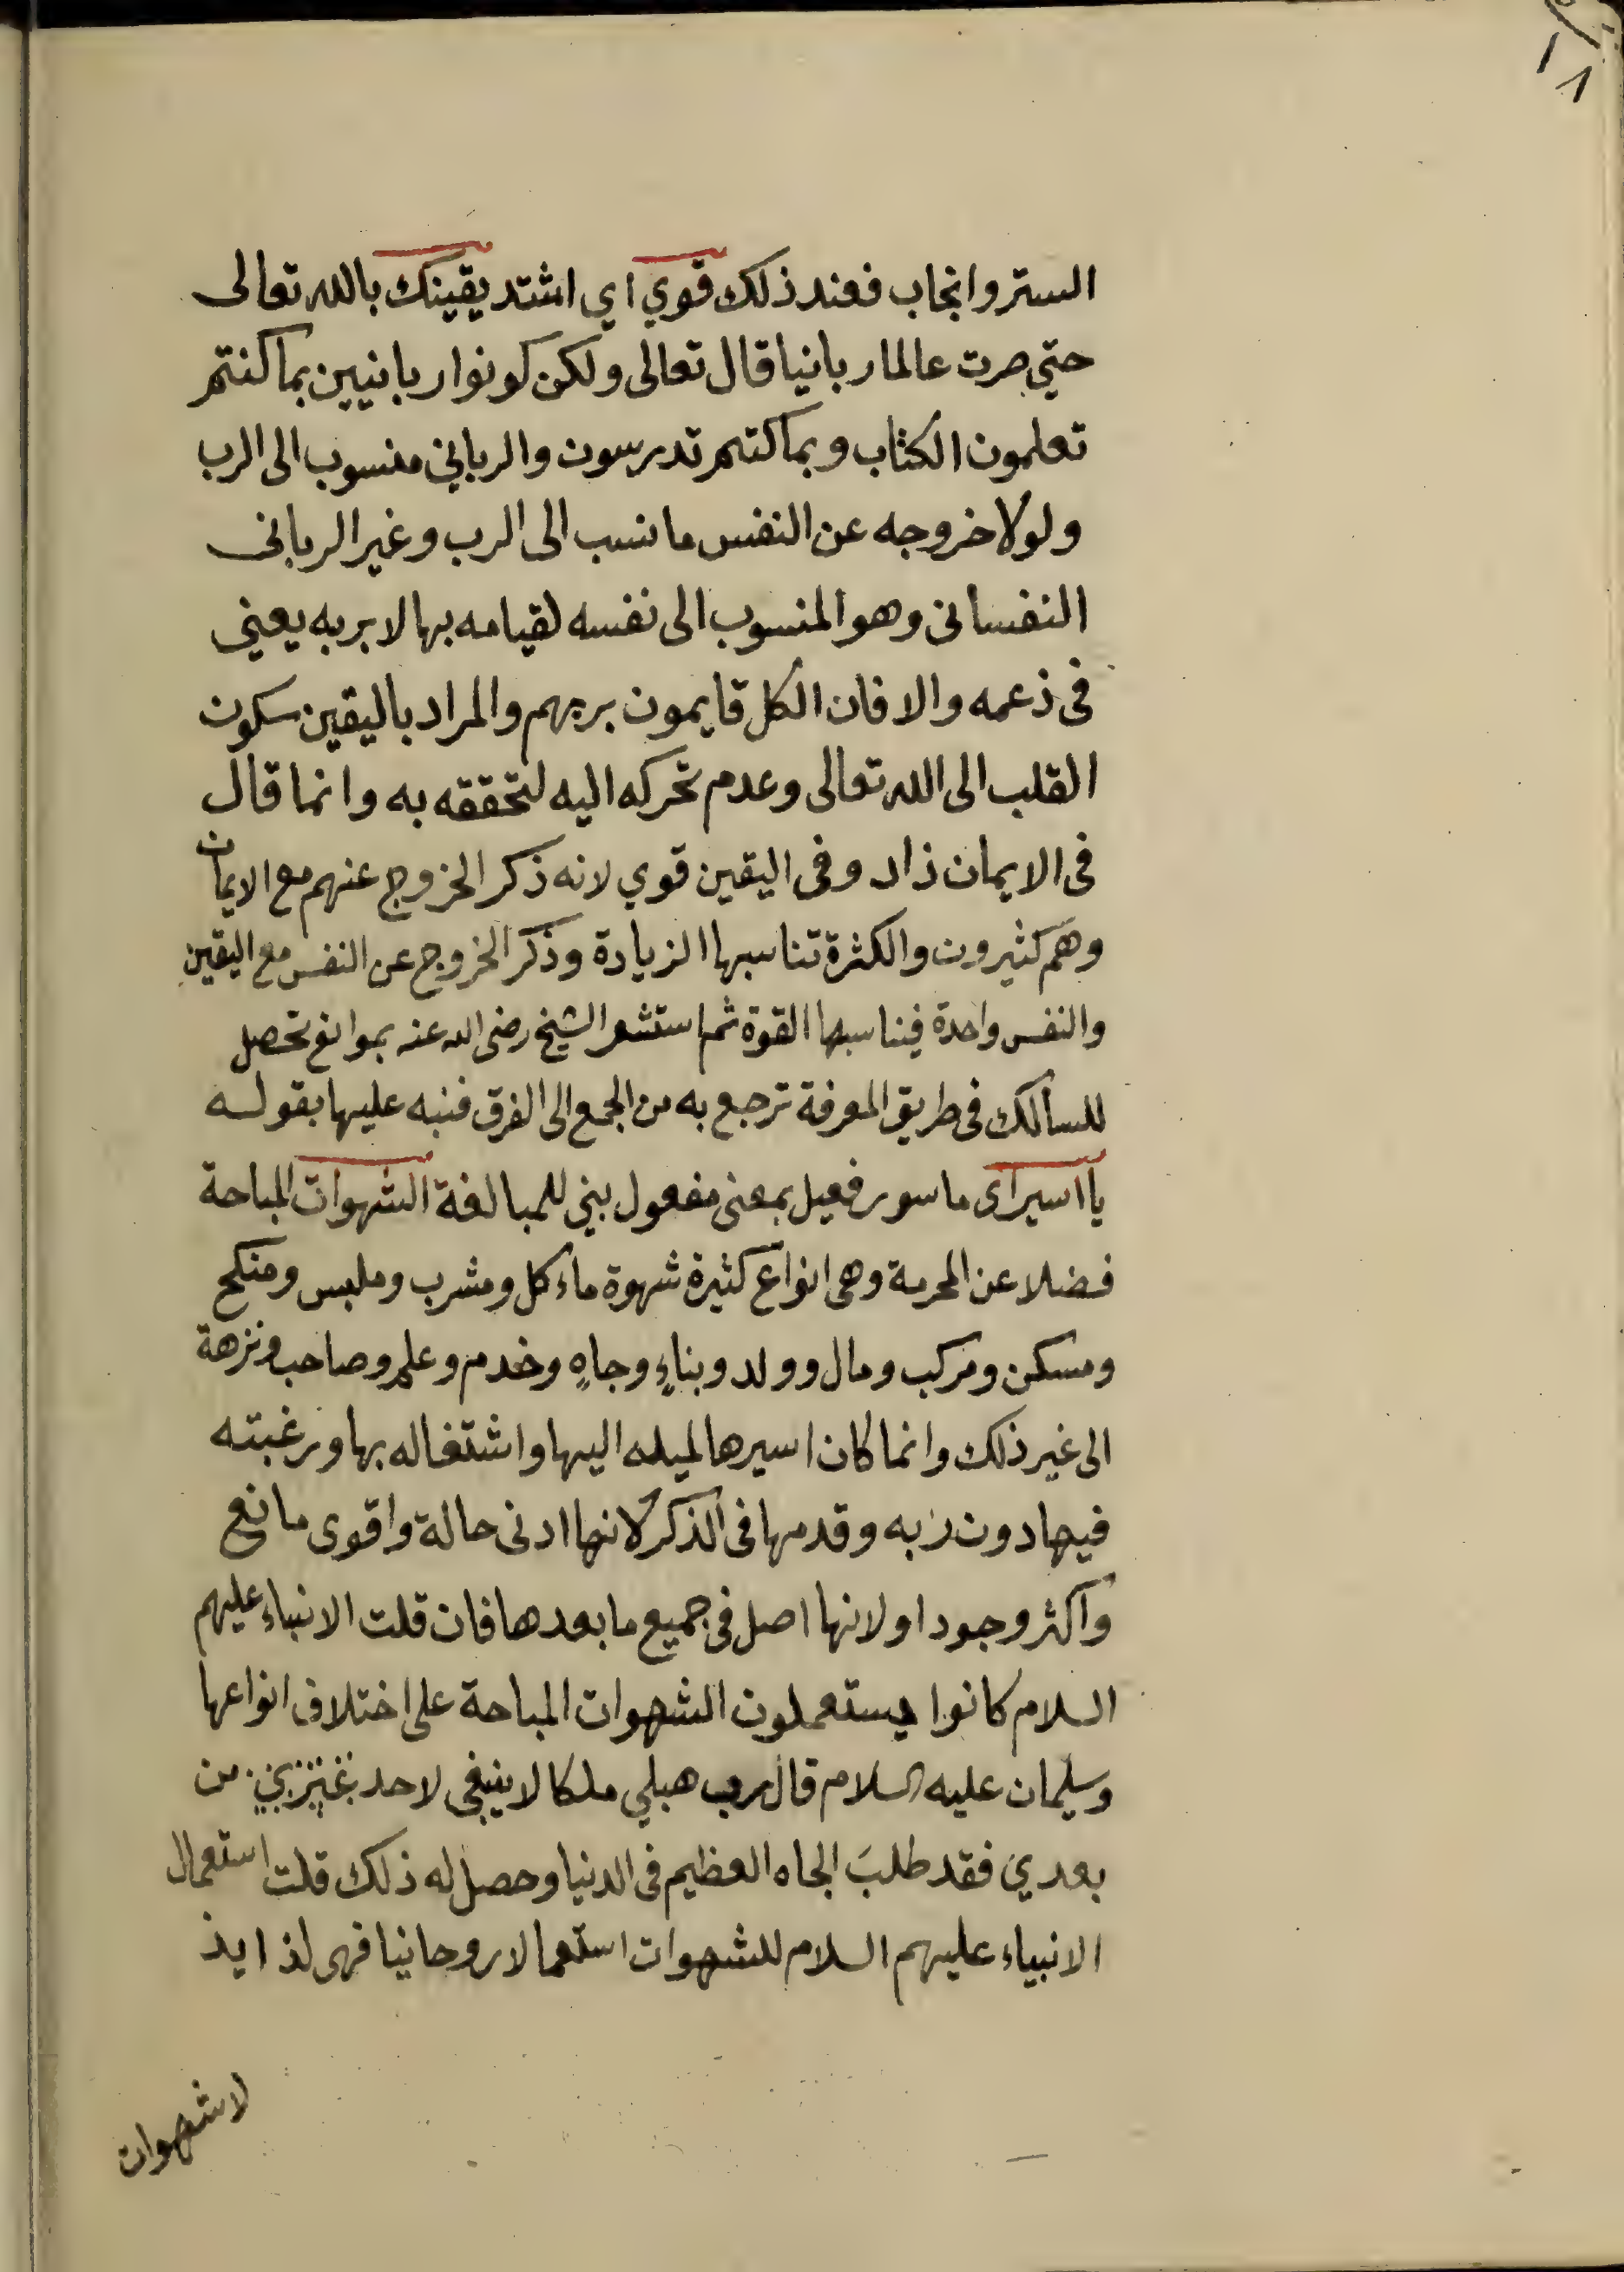 ١٨
الستر وانجاب فعند ذلك قوي اي اشتد يقينك بالله تعالى
حتي صرت عالما ربانيا قال تعالى ولكن كونوا ربانيين بما كنتم
تعلمون الكتاب وبما كنتم تدرسون والرباني منسوب الى الرب
ولولا خروجه عن النفس ما نسب الى الرب وغير الرباني
النفساني وهو المنسوب الى نفسه لقيامه بها لا بربه يعني
في زعمه والا فان الكل قايمون بربهم والمراد باليقين سكون
القلب الى الله تعالى وعدم تحركه اليه لتحققه به وانما قال
في الايمان زاد وفي اليقين قوي لانه ذكر الخروج عنهم مع الايمان
وهم كثيرون والكثرة تناسبها الزيادة وذكر الخروج عن النفس مع اليقين
والنفس واحدة فيناسبها القوة ثم استشعر الشيخ رضى الله عنه بموانع تحصل
للسالك في طريق المعرفة ترجع به من الجمع الى الفرق فنبه عليها بقوله
يا اسير اى ماسور فعيل بمعنى مفعول بني للمبالغة الشهوات المباحة
فضلا عن المحرمة وهي انواع كثيرة شهوة ماءكل ومشرب وملبس ومنكح
ومسكن ومركب ومال وولد وبناءٍ وجاهٍ وخدم وعلم وصاحب ونزهة
الى غير ذلك وانما كان اسيرها لميله اليها واشتغاله بها ورغبته
فيها دون ربه وقدمها في الذكر لانها ادنى حالة واقوى مانع
واكثر وجودا ولانها اصل في جميع ما بعدها فان قلت الانبياء عليهم
السلام كانوا يستعملون الشهوات المباحة على اختلاف انواعها
وسليمان عليه السلام قال رب هبلي ملكا لا ينبغي لاحد من
بعدي فقد طلبَ الجاه العظيم في الدنيا وحصل له ذلك قلت استعمال
الانبياء عليهم السلام للشهوات استعمالا روحانيا فهى لذايذ
لا شهوات